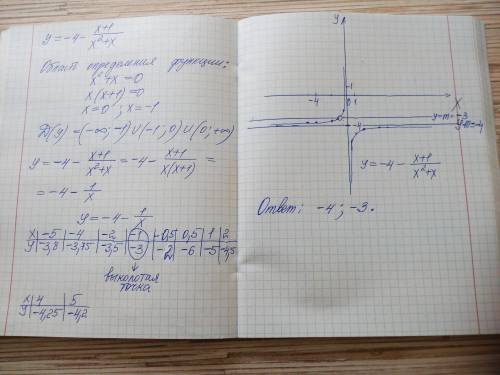 y = -4 - \frac{x+1}{x^2+x}
Область определения функции:
x^2+x=0
x(x+1)=0
x=0 ; x=-1
D(y)=(-∞;-1)∪(-1;0)∪(0;+∞)
y = -4 - \frac{x+1}{x^2+x} = -4 - \frac{x+1}{x(x+1)} =
= -4 - \frac{1}{x}
y = -4 - \frac{1}{x}
x | -5 | -4 | -2 | -1 | -0,5 | 0,5 | 1 | 2
y | -3,8 | -3,75 | -3,5 | -3 | -2 | -6 | -5 | -4,5
выколотая
точка
x | 4 | 5
y | -4,25 | -4,2
y
1
-4 0 1
x
y=m=-3
y=m=-4
-4
y = -4 - \frac{x+1}{x^2+x}
Ответ: -4; -3.